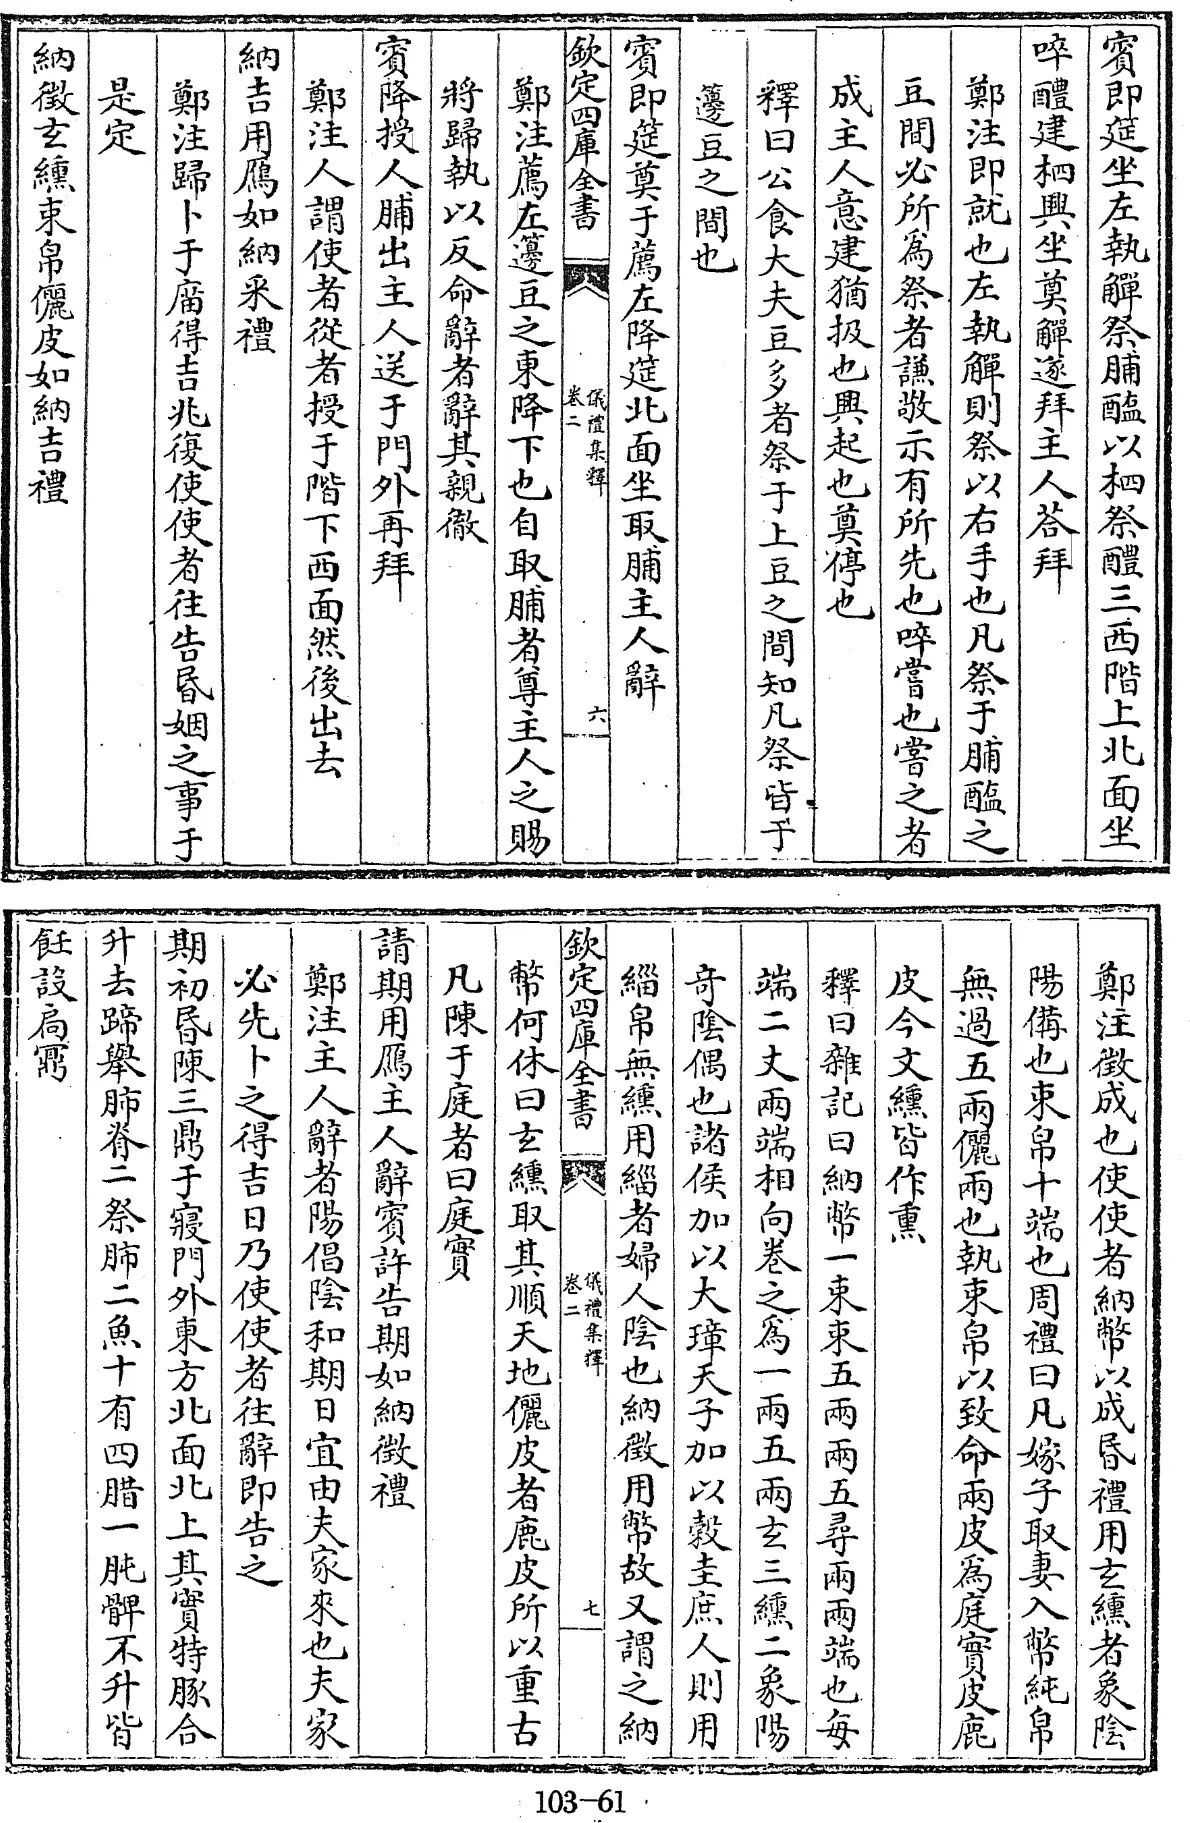 賓即筵坐左執觶祭脯醢以柶祭醴三西階上北面坐
啐醴建柶興坐奠觶遂拜主人荅拜
鄭注即就也左執觶則祭以右手也凡祭于脯醢之
豆間必所爲祭者謙敬示有所先也啐嘗也嘗之者
成主人意建猶扱也興起也奠停也
釋曰公食大夫豆多者祭于上豆之間知凡祭皆于
籩豆之間也
賓即筵奠于薦左降筵北面坐取脯主人辭
欽定四庫全書
儀禮集釋
卷二
六
鄭注薦左籩豆之東降下也自取脯者尊主人之賜
將歸執以反命辭者辭其親徹
賓降授人脯出主人送于門外再拜
鄭注人謂使者從者授于階下西面然後出去
納吉用鴈如納采禮
鄭注歸卜于廟得吉兆復使使者往告昏姻之事于
是定
納徵玄纁束帛儷皮如納吉禮
鄭注徵成也使使者納幣以成昏禮用玄纁者象陰
陽備也束帛十端也周禮曰凡嫁子取妻入幣純帛
無過五兩儷兩也執束帛以致命兩皮爲庭實皮鹿
皮今文纁皆作熏
釋曰雜記曰納幣一束束五兩兩五尋兩兩端也每
端二丈兩端相向卷之爲一兩五兩玄三纁二象陽
奇陰偶也諸侯加以大璋天子加以穀圭庶人則用
緇帛無纁用緇者婦人陰也納徵用幣故又謂之納
欽定四庫全書
儀禮集釋
卷二
七
幣何休曰玄纁取其順天地儷皮者鹿皮所以重古
凡陳于庭者曰庭實
請期用鴈主人辭賓許告期如納徵禮
鄭注主人辭者陽倡陰和期日宜由夫家來也夫家
必先卜之得吉日乃使使者往辭即告之
期初昏陳三鼎于寢門外東方北面北上其實特豚合
升去蹄舉肺脊二祭肺二魚十有四腊一肫髀不升皆
飪設扃鼏
103-61